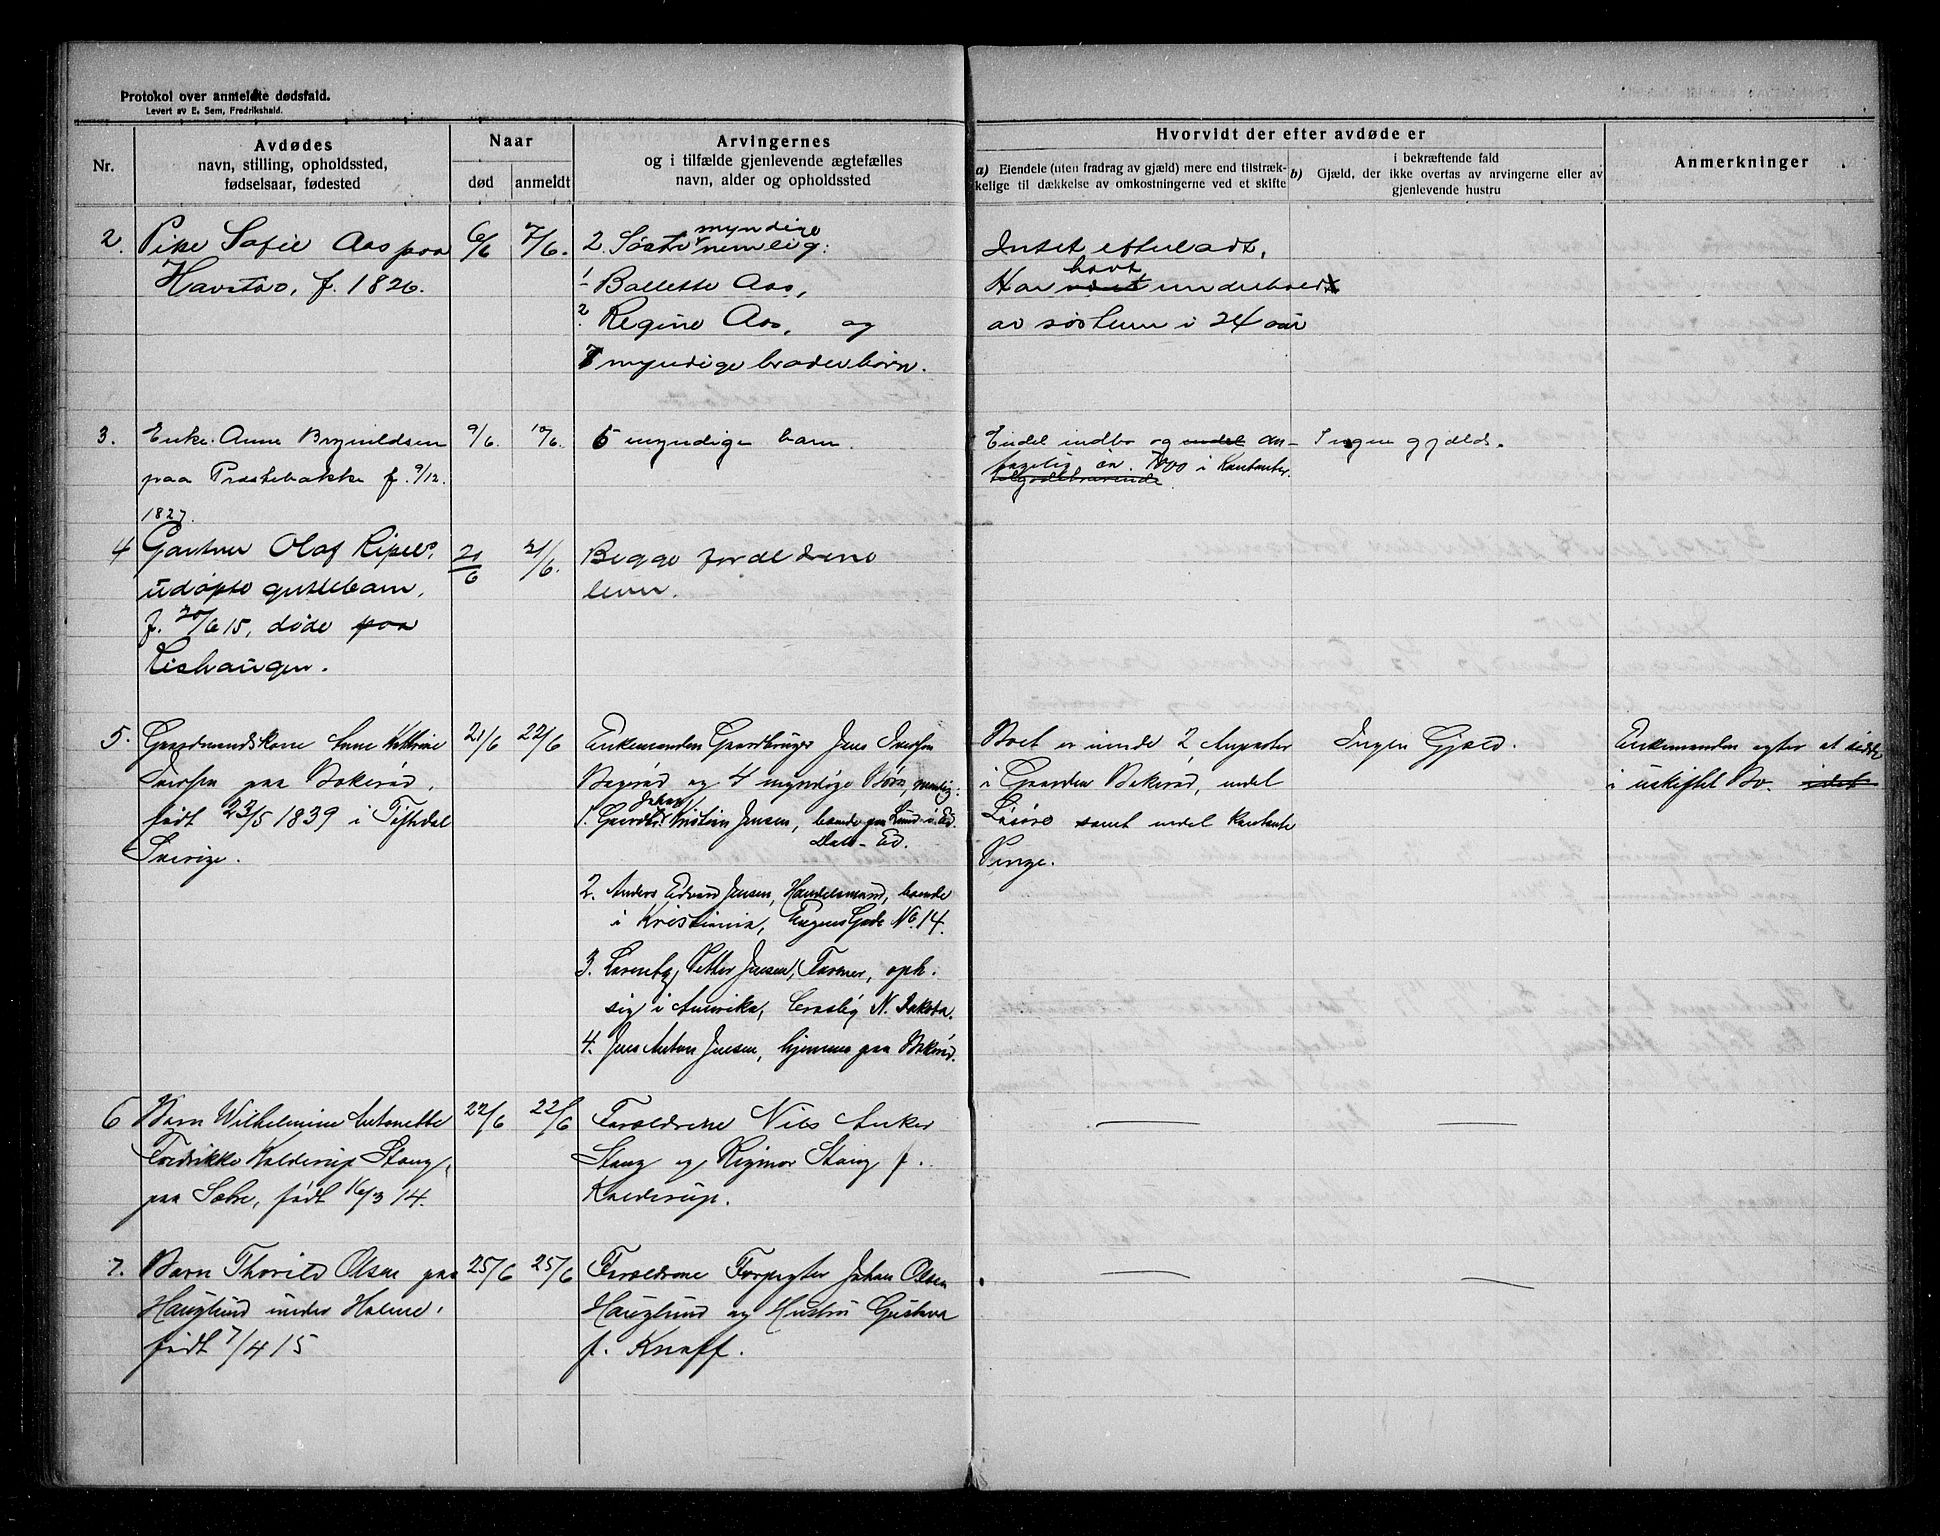 Protokol over anmeldte dødsfald.
Levert av E. Sem, Fredrikshald.
Nr.
Avdødes
navn, stilling, opholdssted,
fødselsaar, fødested
Naar
død
anmeldt
Arvingernes
og i tilfælde gjenlevende ægtefælles
navn, alder og opholdssted
Hvorvidt der efter avdøde er
a) Eiendele (uten fradrag av gjæld) mere end tilstræk-
kelige til dækkelse av omkostningerne ved et skifte
i bekræftende fald
b) Gjæld, der ikke overtas av arvingerne eller av
gjenlevende hustru
Anmerkninger
2.
Pike Sofie Aas paa
Havstøo, f. 1826.
6/6
7/6.
myndige
2 Søstre nemlig:
1 Bollette Aas,
2. Regine Aas, og
7 myndige broderbørn.
Intet efterladt.
havt
Har været underhold
av søsteren i 24 aar
3.
Enke Anne Brynildsen
paa Præstebakke f. 9/12.
1827.
9/6.
10/6.
6 myndige barn.
Endel indbo og endel an-
tagelig en. 7000 i Kontanter.
tilgodehavende
Ingen gjæld.
4
Gartner Olaf
udøpte guttebarn,
f. 20/6 15, døde paa
Lishaugen.
21/6
21/6.
Begge forældrene
lever.
5.
Gaardmandskone Anne Kathrine
Iversen paa Bokerød,
født 23/5 1839 i Tistedal
Sverige.
21/6
22/6
Enkemanden Gaardbruger Jens Iversen
Bøgerød og 4 myndige Børn, nemlig:
Johan
1. Gaardbr. Kristian Jensen, boende paa Lund i Ed
Dals-Ed.
2. Anders Edvard Jensen, Handelsmand, boende
i Kristiania, Gade No. 14.
3. Petter Jensen, Farmer, oph.
sig i Amerika, N. Dakota.
4. Jens Anton Jensen, hjemme paa Bokerød.
Boet er inde 2 Anparter
i Gaarden Bokerød, endel
Løsøre samt endel kontante
Penge.
Ingen Gjæld.
Enkemanden agter at sidde
i uskiftet Bo.
6
Barn Wilhelmine Antonette
Fredrikke Kolderup Stang,
paa Solve, født 16/3 14.
22/6
22/6
Forældrene Nils Anker
Stang og Rigmor Stang f.
Kolderup.
7.
Barn Thorild Olsen paa
Hauglund under Holme,
født 7/4 15
25/6
25/6
Forældrene Forpagter Johan Olsen
Hauglund og Hustru Gustava
f. Knoff.